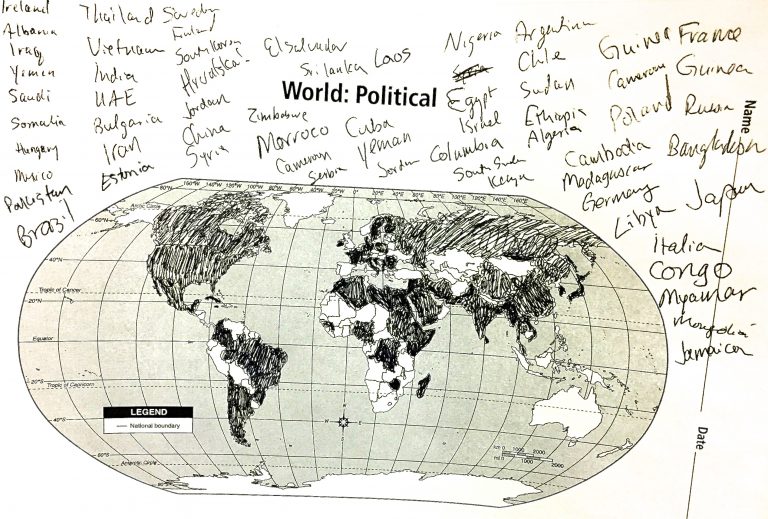 Ireland
Albania
Iraq
Yemen
Saudi
Somalia
Hungary
Mexico
Pakistan
Brazil
Thailand
Vietnam
India
UAE
Bulgaria
Iran
Estonia
Sweden
Finland
South Korea
Hrvatska
Jordan
China
Syria
El Salvador
Sri Lanka
Laos
World: Political
Zimbabwe
Morroco
Cuba
Cameroon
Yeman
Serbia
Jordan
Nigeria
Egypt
Israel
Columbia
South Sudan
Kenya
Argentina
Chile
Sudan
Ethiopia
Algeria
Guinea
Cameroon
Poland
Cambodia
Madagascar
Germany
Libya
France
Guinea
Russia
Bangladesh
Japan
Italia
Congo
Myanmar
Mongolia
Jamaica
Name
Date
80°N
160°W 140°W 120°W 100°W 80°W 60°W 40°W 20°W 0° 20°E 40°E 60°E 80°E 100°E 120°E 140°E 160°E
Arctic Circle
60°N
40°N
Tropic of Cancer
20°N
Equator
20°S
Tropic of Capricorn
40°S
60°S
Antarctic Circle
80°S
LEGEND
National boundary
N
W E
S
km 0 1000 2000
mi 0 1000 2000